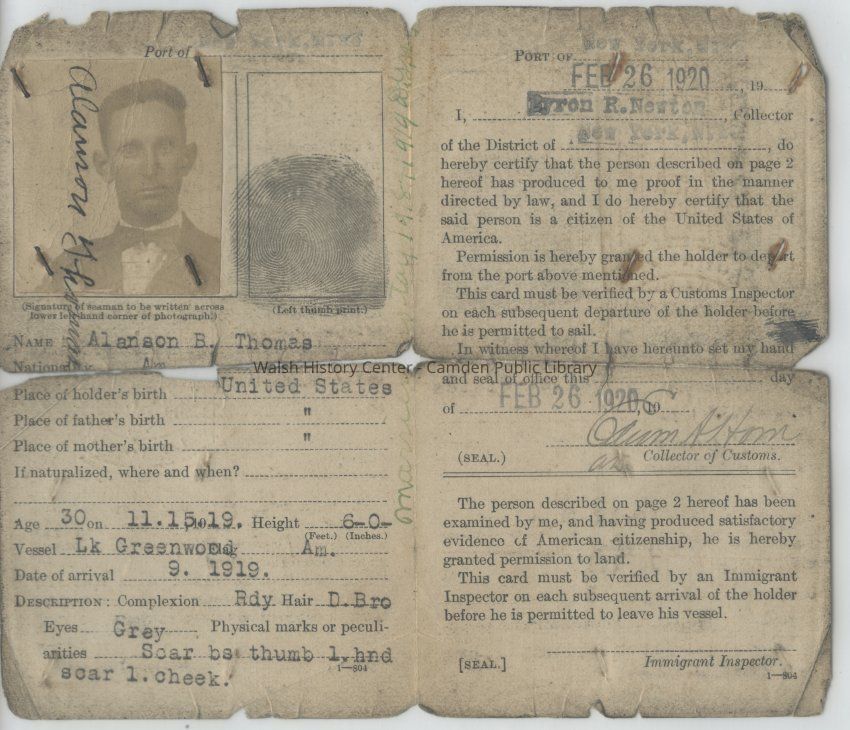 Port of
Alanson Thomas
(Signature of seaman to be written across
lower left-hand corner of photograph.)
(Left thumb print.)
NAME Alanson B. Thomas
Am
Place of holder's birth United States
Place of father's birth "
Place of mother's birth "
If naturalized, where and when?
Age 30 on 11.15.19. Height 6-0-
(Feet.) (Inches.)
Vessel Lk Greenwood Am.
Date of arrival 9. 1919.
DESCRIPTION: Complexion Rdy Hair D.Bro
Eyes Grey Physical marks or peculi-
arities Scar bs thumb l.hnd
scar l.cheek.
1—804
PORT OF New York, N.Y.
FEB 26 1920, 19
I, Byron R. Newton, Collector
of the District of New York, do
hereby certify that the person described on page 2
hereof has produced to me proof in the manner
directed by law, and I do hereby certify that the
said person is a citizen of the United States of
America.
Permission is hereby granted the holder to depart
from the port above mentioned.
This card must be verified by a Customs Inspector
on each subsequent departure of the holder before
he is permitted to sail.
In witness whereof I have hereunto set my hand
Walsh History Center - Camden Public Library
and seal of office this day
of FEB 26 1920
(SEAL.) Collector of Customs.
The person described on page 2 hereof has been
examined by me, and having produced satisfactory
evidence of American citizenship, he is hereby
granted permission to land.
This card must be verified by an Immigrant
Inspector on each subsequent arrival of the holder
before he is permitted to leave his vessel.
[SEAL.] Immigrant Inspector.
1—804